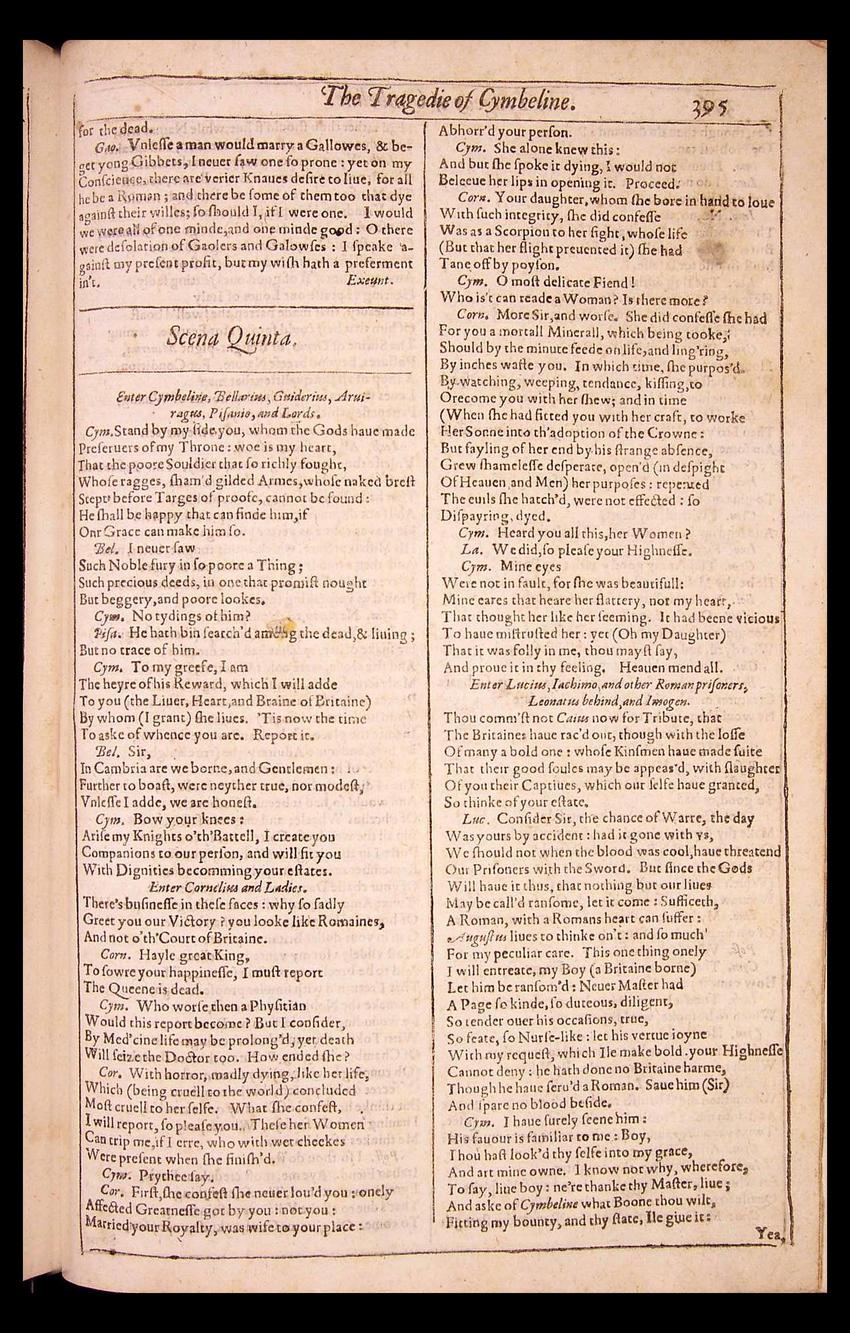 The Tragedie of Cymbeline. 395
for the dead.
Gao. Vnleſſe a man would marry a Gallowes, & be-
get yong Gibbets, I neuer ſaw one ſo prone : yet on my
Conſcience, there are verier Knaues deſire to liue, for all
he be a Roman ; and there be ſome of them too that dye
againſt their willes; ſo ſhould I, if I were one. I would
we were all of one minde,and one minde good : O there
were deſolation of Gaolers and Galowſes : I ſpeake a-
gainſt my preſent profit, but my wiſh hath a preferment
in't. Exeunt.
Scena Quinta.
Enter Cymbeline, Bellarius, Guiderius, Arui-
ragus, Piſanio, and Lords.
Cym.Stand by my ſide you, whom the Gods haue made
Preſeruers of my Throne : woe is my heart,
That the poore Souldier that ſo richly fought,
Whoſe ragges, ſham'd gilded Armes,whoſe naked breſt
Stept before Targes of proofe, cannot be found :
He ſhall be happy that can finde him,if
Onr Grace can make him ſo.
Bel. I neuer ſaw
Such Noble fury in ſo poore a Thing ;
Such precious deeds, in one that promiſt nought
But beggery,and poore lookes.
Cym. No tydings of him?
Piſa. He hath bin ſearch'd among the dead,& liuing ;
But no trace of him.
Cym. To my greefe, I am
The heyre of his Reward, which I will adde
To you (the Liuer, Heart,and Braine of Britaine)
By whom (I grant) ſhe liues. 'Tis now the time
To aske of whence you are. Report it.
Bel. Sir,
In Cambria are we borne,and Gentlemen :
Further to boaſt, were neyther true, nor modeſt,
Vnleſſe I adde, we are honeſt.
Cym. Bow your knees :
Ariſe my Knights o'th'Battell, I create you
Companions to our perſon, and will fit you
With Dignities becomming your eſtates.
Enter Cornelius and Ladies.
There's buſineſſe in theſe faces : why ſo ſadly
Greet you our Victory ? you looke like Romaines,
And not o'th'Court of Britaine.
Corn. Hayle great King,
To ſowre your happineſſe, I muſt report
The Queene is dead.
Cym. Who worſe then a Phyſitian
Would this report become ? But I conſider,
By Med'cine life may be prolong'd, yet death
Will ſeize the Doctor too. How ended ſhe ?
Cor. With horror, madly dying, like her life,
Which (being cruell to the world) concluded
Moſt cruell to her ſelfe. What ſhe confeſt,
I will report, ſo pleaſe you. Theſe her Women
Can trip me,if I erre, who with wet cheekes
Were preſent when ſhe finiſh'd.
Cym. Prythee ſay.
Cor. Firſt,ſhe confeſt ſhe neuer lou'd you : onely
Affected Greatneſſe got by you : not you :
Married your Royalty, was wife to your place :
Abhorr'd your perſon.
Cym. She alone knew this :
And but ſhe ſpoke it dying, I would not
Beleeue her lips in opening it. Proceed.
Corn. Your daughter,whom ſhe bore in hand to loue
With ſuch integrity, ſhe did confeſſe
Was as a Scorpion to her ſight, whoſe life
(But that her flight preuented it) ſhe had
Tane off by poyſon.
Cym. O moſt delicate Fiend !
Who is't can reade a Woman ? Is there more ?
Corn. More Sir,and worſe. She did confeſſe ſhe had
For you a mortall Minerall, which being tooke,
Should by the minute feede on life,and ling'ring,
By inches waſte you. In which time, ſhe purpos'd
By watching, weeping, tendance, kiſſing,to
Orecome you with her ſhew; and in time
(When ſhe had fitted you with her craft, to worke
Her Sonne into th'adoption of the Crowne :
But fayling of her end by his ſtrange abſence,
Grew ſhameleſſe deſperate, open'd (in deſpight
Of Heauen, and Men) her purpoſes : repented
The euils ſhe hatch'd, were not effected : ſo
Diſpayring, dyed.
Cym. Heard you all this,her Women ?
La. We did,ſo pleaſe your Highneſſe.
Cym. Mine eyes
Were not in fault, for ſhe was beautifull:
Mine eares that heare her flattery, nor my heart,
That thought her like her ſeeming. It had beene vicious
To haue miſtruſted her : yet (Oh my Daughter)
That it was folly in me, thou mayſt ſay,
And proue it in thy feeling. Heauen mend all.
Enter Lucius, Iachimo, and other Roman priſoners,
Leonatus behind,and Imogen.
Thou comm'ſt not Caius now for Tribute, that
The Britaines haue rac'd out, though with the loſſe
Of many a bold one : whoſe Kinſmen haue made ſuite
That their good ſoules may be appeas'd, with ſlaughter
Of you their Captiues, which our ſelfe haue granted,
So thinke of your eſtate.
Luc. Conſider Sir, the chance of Warre, the day
Was yours by accident : had it gone with vs,
We ſhould not when the blood was cool,haue threatend
Our Priſoners with the Sword. But ſince the Gods
Will haue it thus, that nothing but our liues
May be call'd ranſome, let it come : Sufficeth,
A Roman, with a Romans heart can ſuffer :
Auguſtus liues to thinke on't : and ſo much
For my peculiar care. This one thing onely
I will entreate, my Boy (a Britaine borne)
Let him be ranſom'd : Neuer Maſter had
A Page ſo kinde, ſo duteous, diligent,
So tender ouer his occaſions, true,
So feate, ſo Nurſe-like : let his vertue ioyne
With my requeſt, which Ile make bold your Highneſſe
Cannot deny : he hath done no Britaine harme,
Though he haue ſeru'd a Roman. Saue him (Sir)
And ſpare no blood beſide.
Cym. I haue ſurely ſeene him :
His fauour is familiar to me : Boy,
Thou haſt look'd thy ſelfe into my grace,
And art mine owne. I know not why, wherefore,
To ſay, liue boy : ne're thanke thy Maſter, liue ;
And aske of Cymbeline what Boone thou wilt,
Fitting my bounty, and thy ſtate, Ile giue it :
Yea,